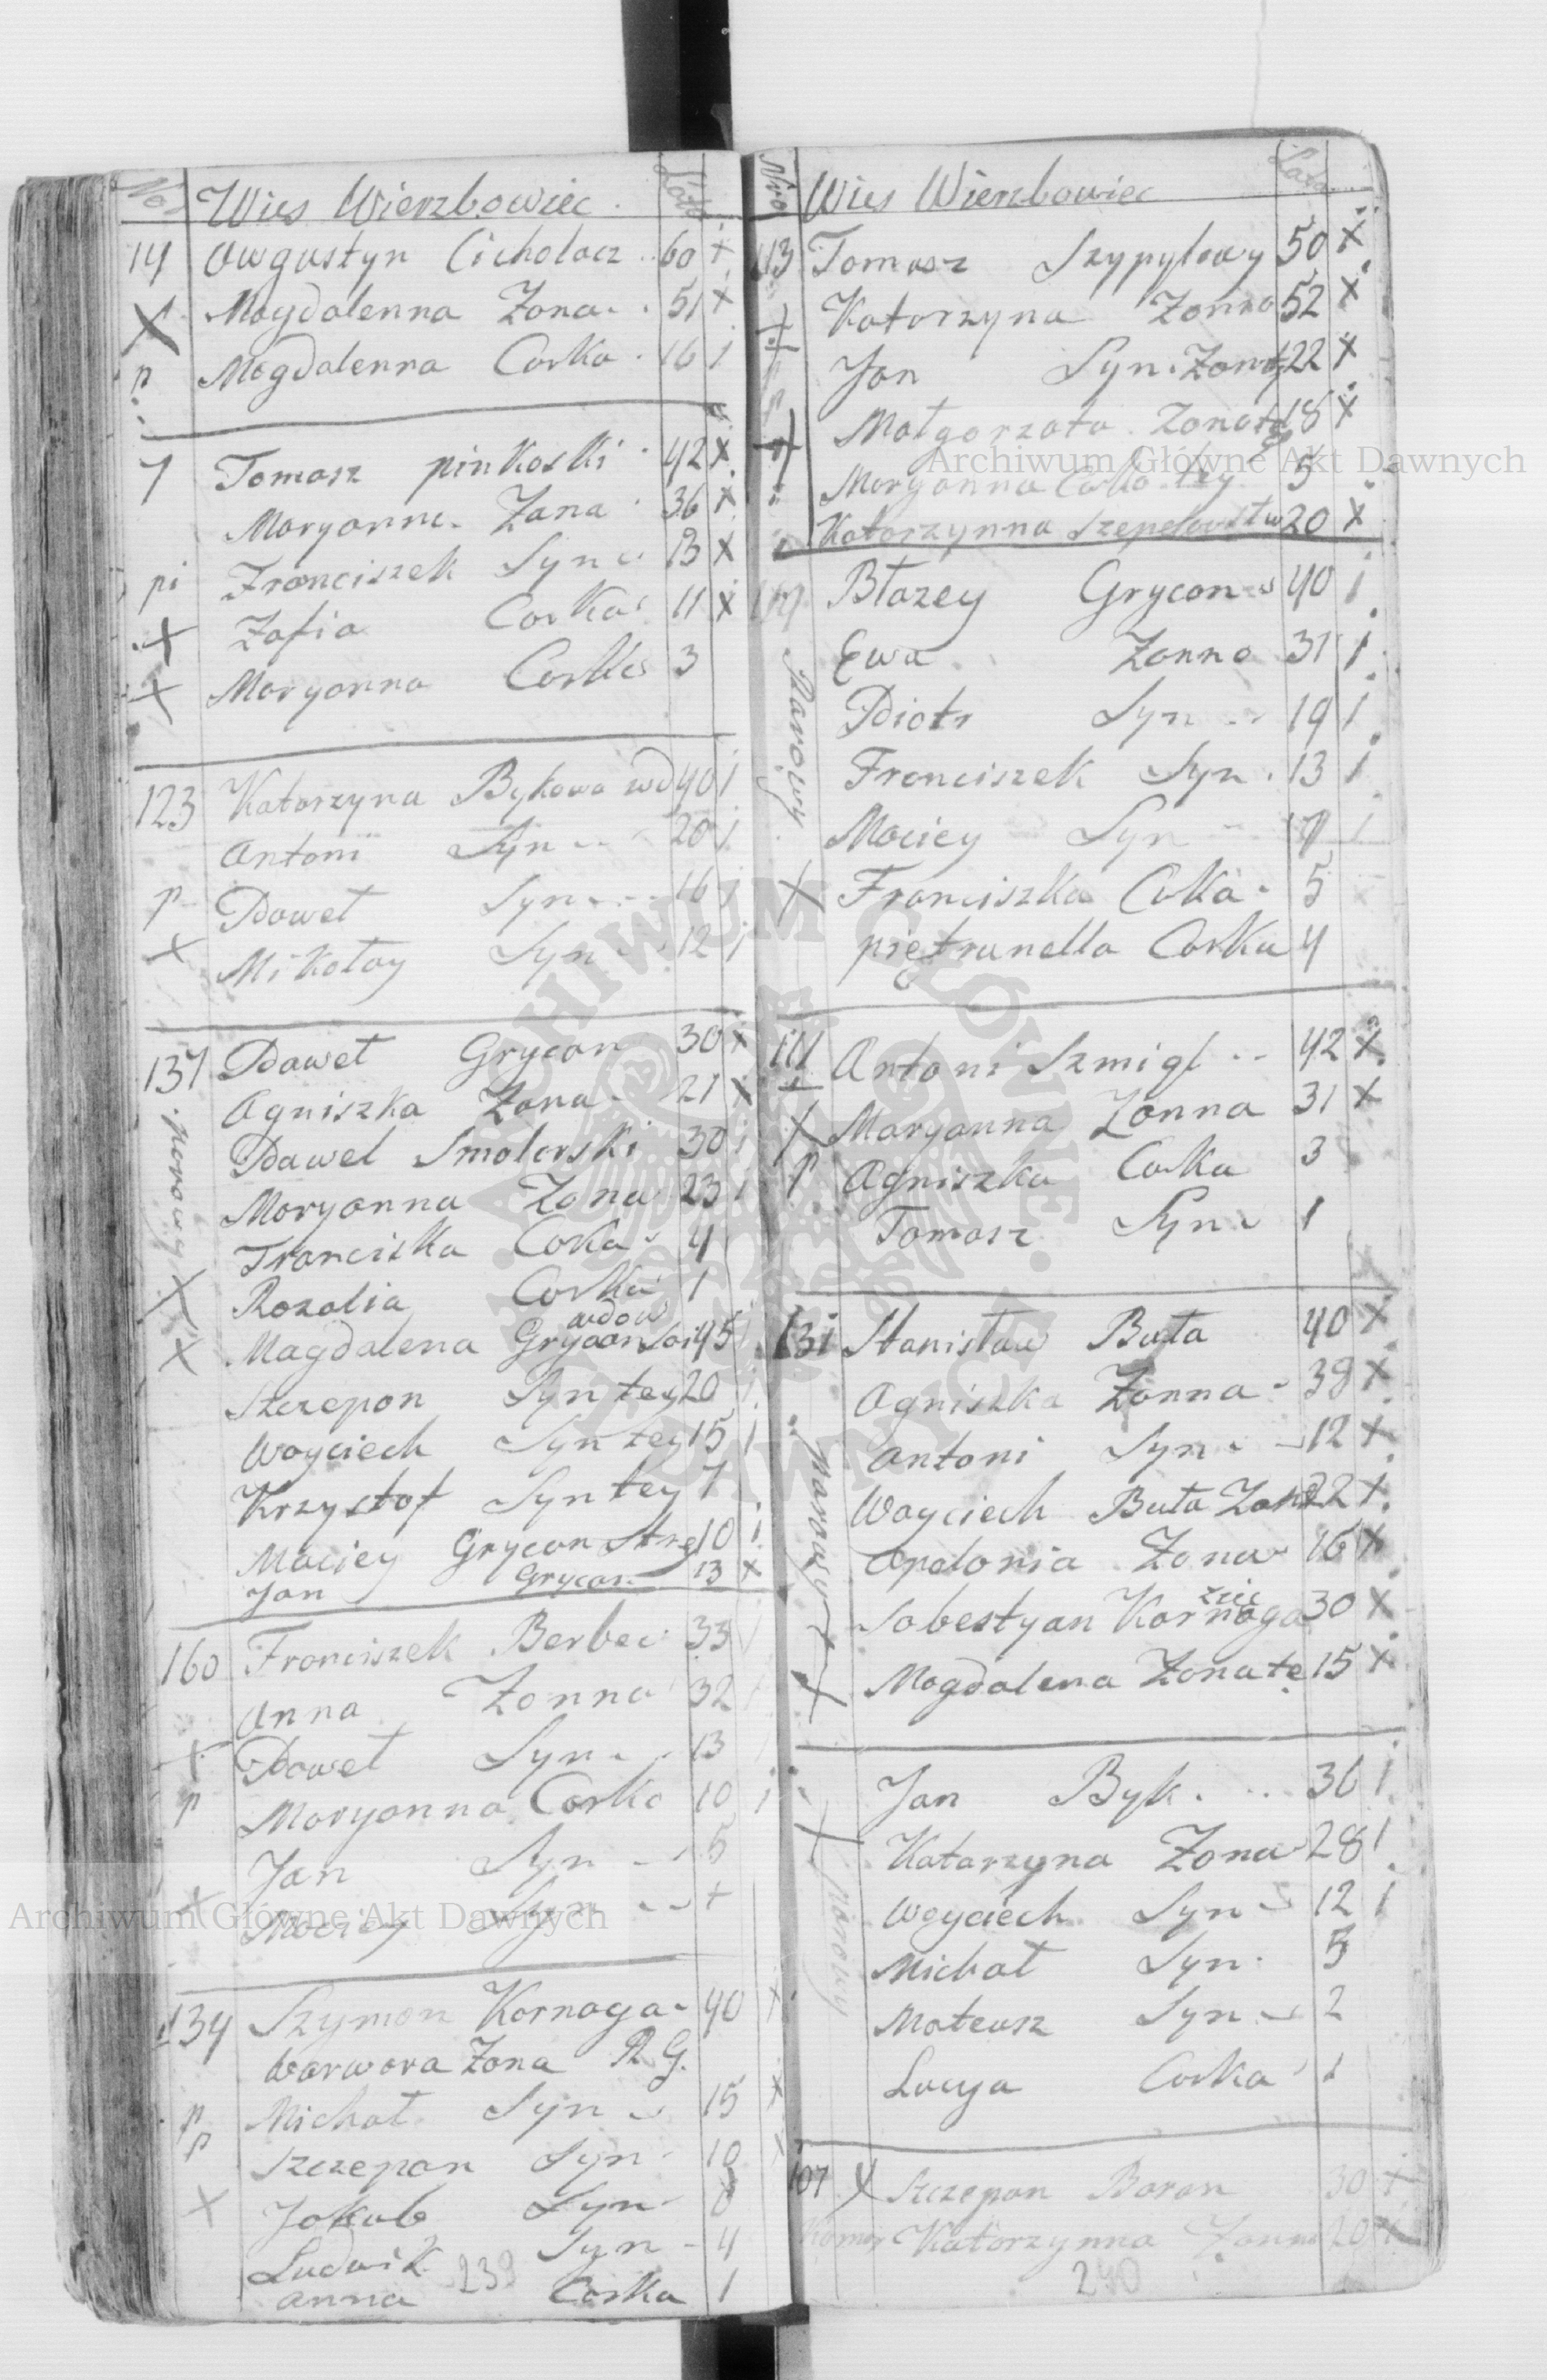 Nro Wies Wierzbowiec. Lata
14 Awgustyn Cicholacz 60 x
X Magdalenna Zona 51 x
p Magdalenna Corka 16 1
7 Tomasz pinkoski 42 x
Maryanna Zona 36 x
pi Franciszek Syn 13 x
x Zofia Corka 11 x
x Maryanna Corka 3
123 Katarzyna Bykowa wd 40 1
Antoni Syn 20 1
p Paweł Syn 16 1
x Mikołay Syn 12 1
137 Paweł Grycan 30 x
Agniszka Zona 21 x
parowy
Pawel Smolerski 30 1
Maryanna Zona 23 1
Franciszka Corka 4
x Rozalia Corka 1
wdow
x Magdalena Grycan 45 1
Szczepan Syn tey 20 1
Woyciech Syn tey 15 1
Krzysztof Syn tey 7
Maciey Grycan 10 1
Jan Grycan 13 x
160 Franciszek Berbec 33 1
Anna Zonna 32 1
x Paweł Syn 13 1
p Maryanna Corka 10 1
Jan Syn 5
x Maciey Syn
134 Szymon Kornaga 40 x
Warwara Zona R. G.
p Michał Syn 15 x
p Szczepan Syn 10 x
x Jakub Syn 8
Ludwik Syn 4
Anna Corka 1
239
Nro Wies Wierzbowiec Lata
113 Tomasz Szypyłowy 50 x
Katarzyna Zonna 52 x
Jan Syn Zonaty 22 x
Małgorzata Zona te 18 x
Maryanna Corka tey 5
Katarzynna 20 x
Błazey Grycan 40 1
Ewa Zonna 31 1
parowy
Piotr Syn 19 1
Franciszek Syn 13 1
Maciey Syn 7 1
x Franciszka Corka 5
piętrunella Corka 4
111 Antoni Szmigl 42 x
x Maryanna Zonna 31 x
p Agniszka Corka 3
Tomasz Syn 1
131 Stanisław Buta 40 x
Agniszka Zonna 38 x
Antoni Syn 12 x
parowy
Woyciech Buta 22 x
Apolonia Zona 16 x
zięc
Sobestyan Kornaga 30 x
x Magdalena Zona te 15 x
Jan Byk 36 1
x Katarzyna Zona 28 1
parowy
Woyciech Syn 12 1
Michał Syn 5
Mateusz Syn 2
Lucya Corka 1
107 x Szczepan Baran 30 x
Komor Katarzynna Zonna 20 x
240
Archiwum Główne Akt Dawnych
Archiwum Główne Akt Dawnych
ARCHIWUM GŁÓWNE AKT DAWNYCH